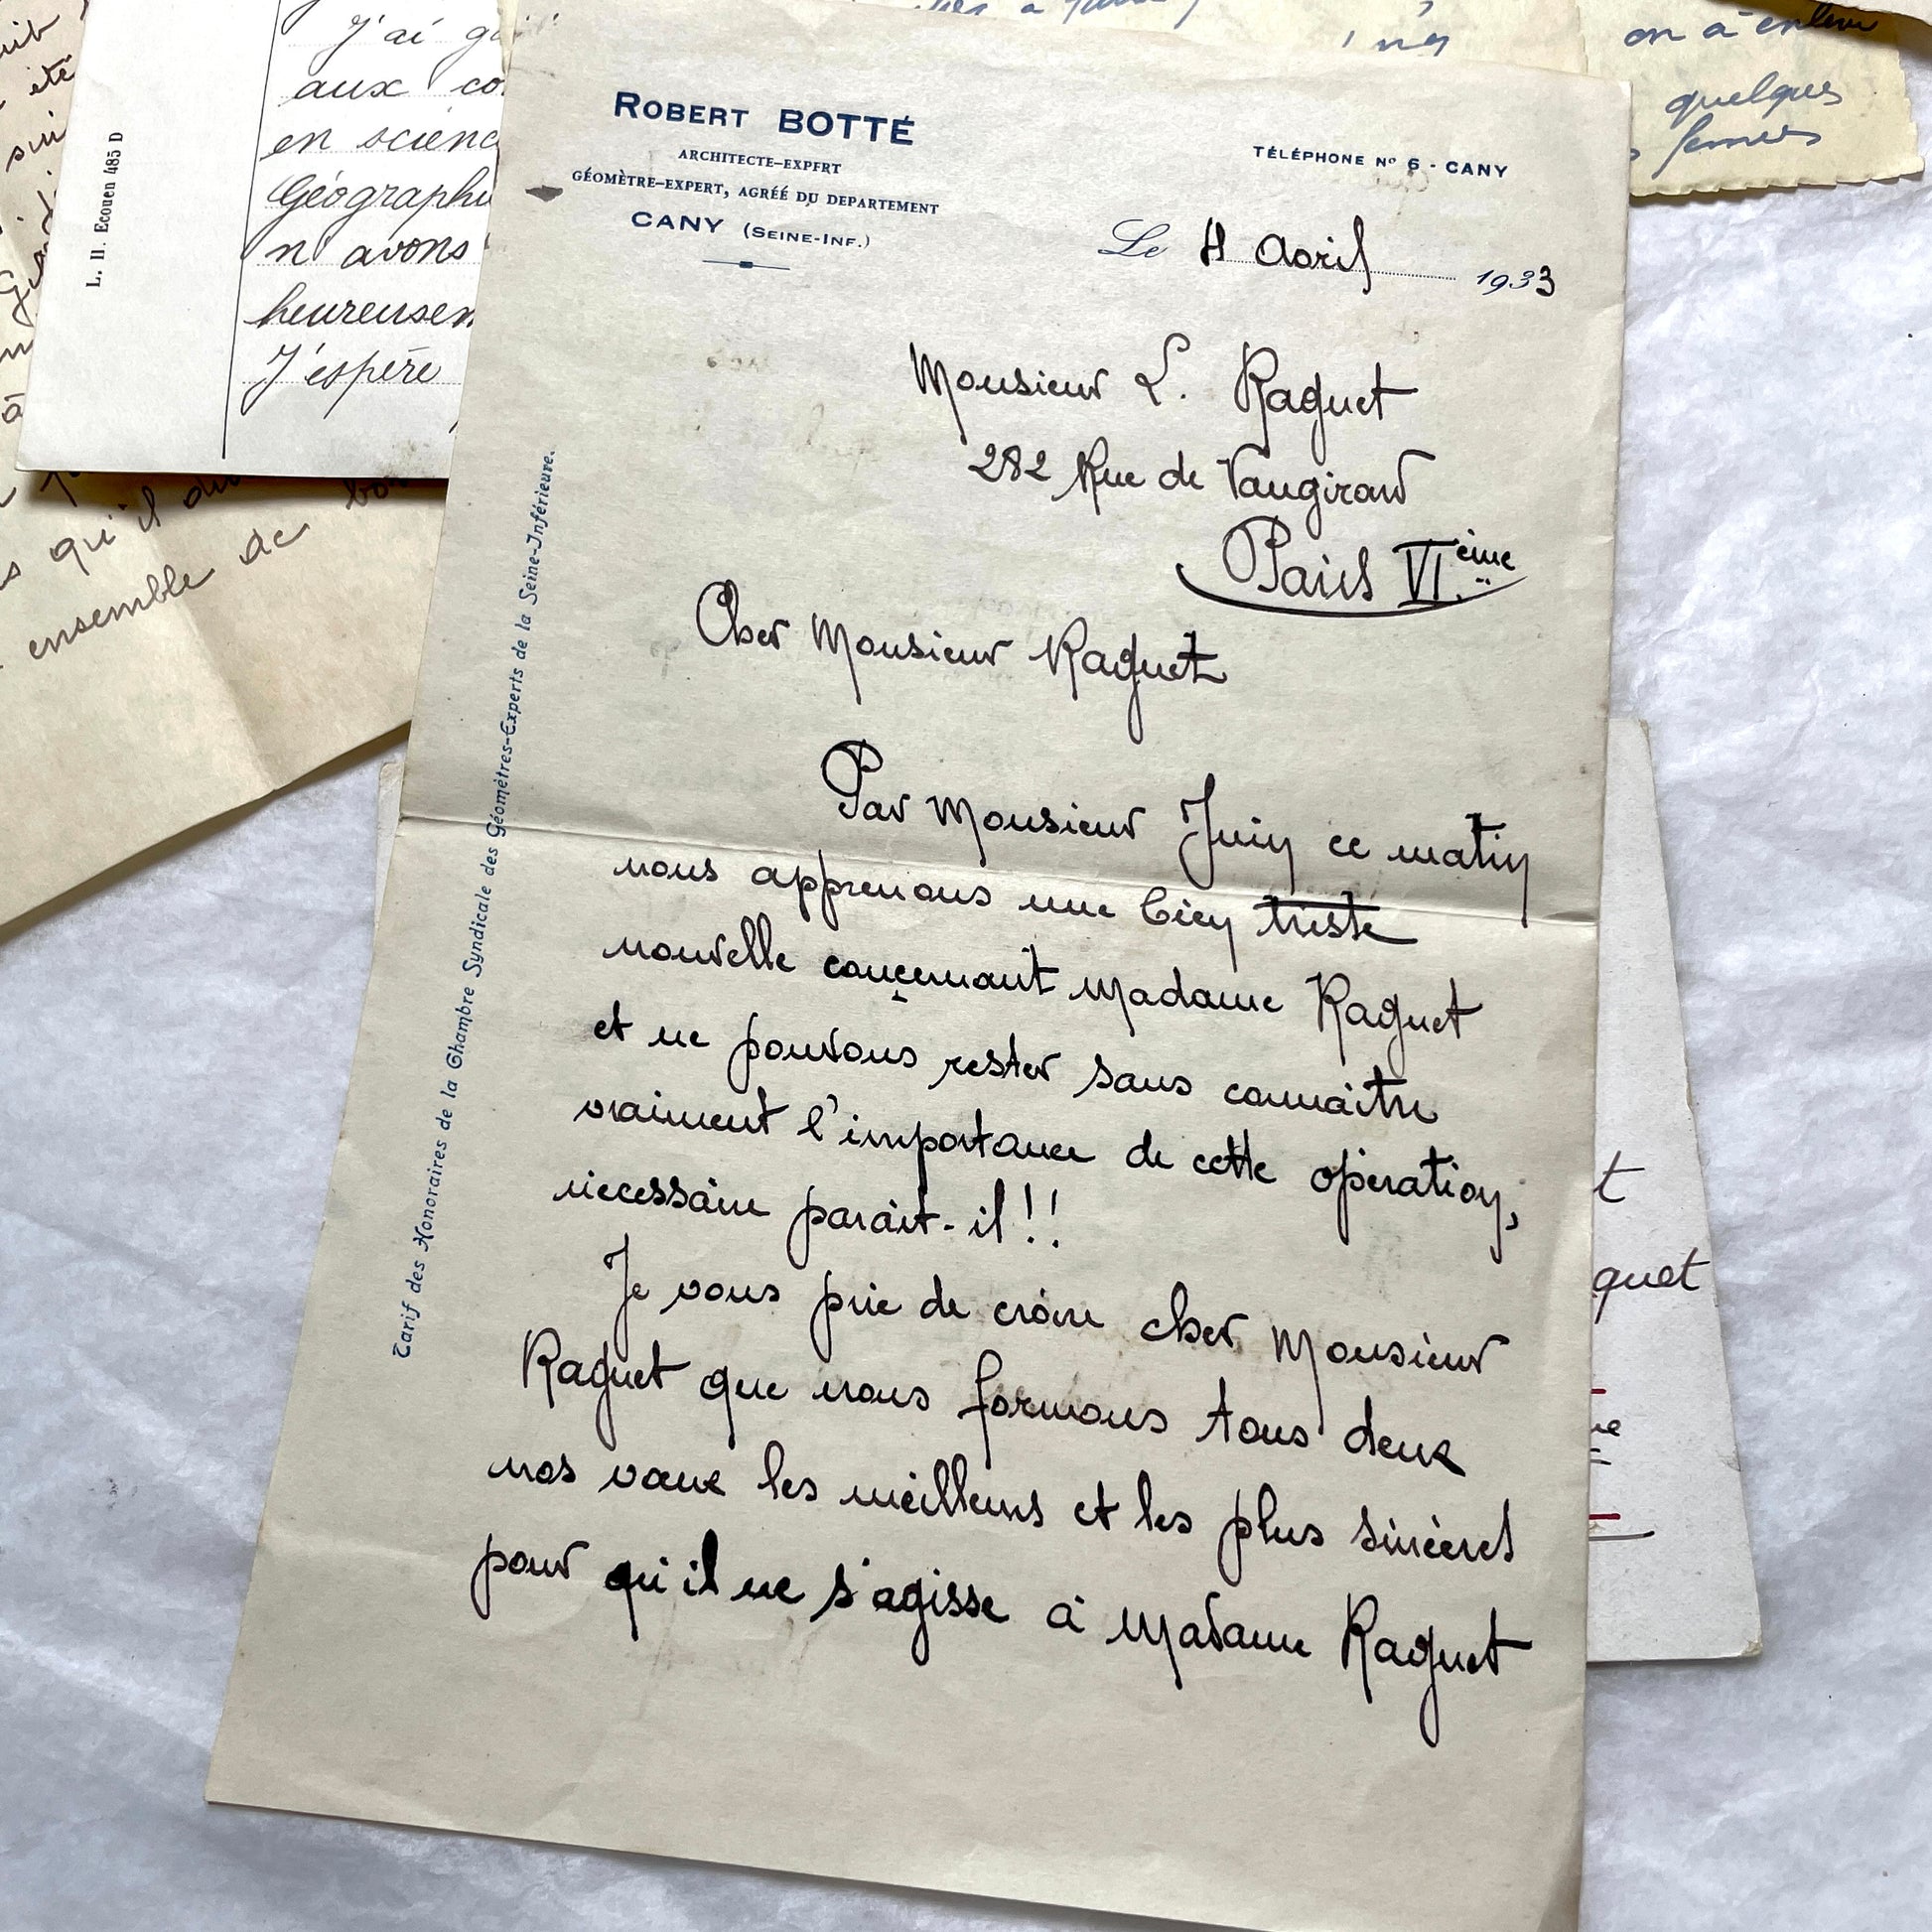 ROBERT BOTTÉ
ARCHITECTE-EXPERT
GÉOMÈTRE-EXPERT, AGRÉÉ DU DEPARTEMENT
CANY (SEINE-INF.)
TÉLÉPHONE Nº 6 - CANY
Le Avril 1933
Monsieur L. Raguet
282 Rue de Vaugirard
Paris VI.ème
Cher Monsieur Raguet
Par Monsieur Juin ce matin
nous apprenons une bien triste
nouvelle concernant Madame Raguet
et ne pouvons rester sans connaitre
vraiment l'importance de cette opération,
necessaire parait-il!!
Je vous prie de croire cher Monsieur
Raguet que nous formons tous deux
nos vœux les meilleurs et les plus sincères
pour qu'il ne s'agisse à Madame Raguet
Tarif des Honoraires de la Chambre Syndicale des Géomètres-Experts de la Seine-Inférieure.
L. H. Ecouen 485 D
J'ai
aux
en
n'avons
J'espère
qu'il
ensemble de
on a enlevé
quelques